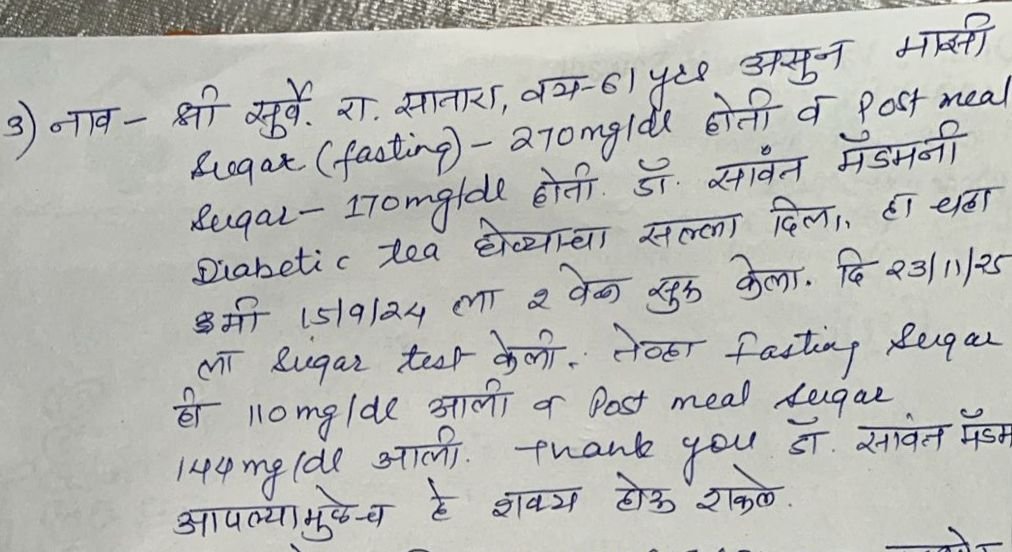 ३) नाव - श्री सुर्वे. रा. सातारा, वय-61 yrs असुन माझी
Sugar (fasting) - 270mg/dl होती व Post meal
Sugar - 170mg/dl होती. डॉ. सावंत मॅडमनी
Diabetic tea घेण्याचा सल्ला दिला. हा चहा
मी 15/9/24 ला २ वेळ सुरू केला. दि २3/11/25
ला Sugar test केली. तेव्हा fasting Sugar
ही 110mg/dl आली व Post meal Sugar
144mg/dl आली. Thank you डॉ. सावंत मॅडम
आपल्यामुळेच हे शक्य होऊ शकले.